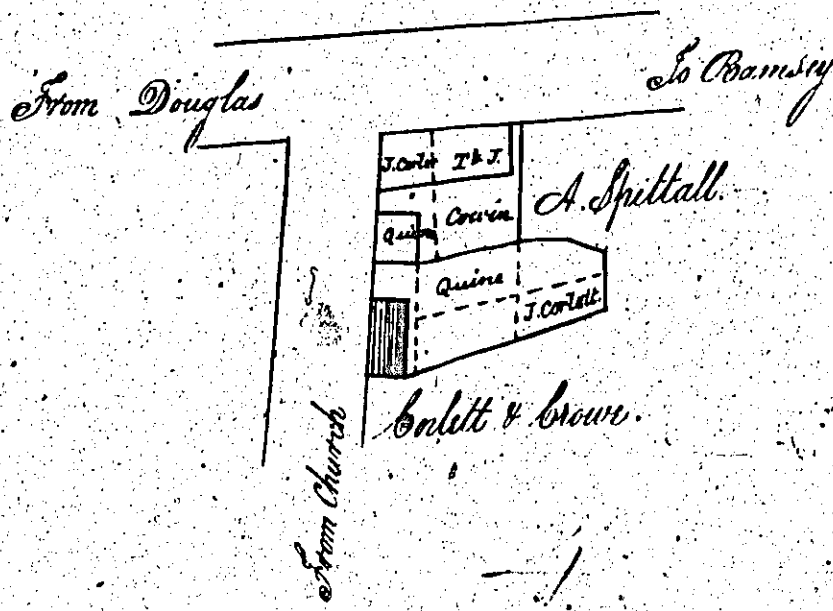 From Douglas
To Ramsey
J. Corlet
T & J.
Cowin
A. Spittall.
Quine
Quine
J. Corlett.
Corlett & Crowe.
From Church